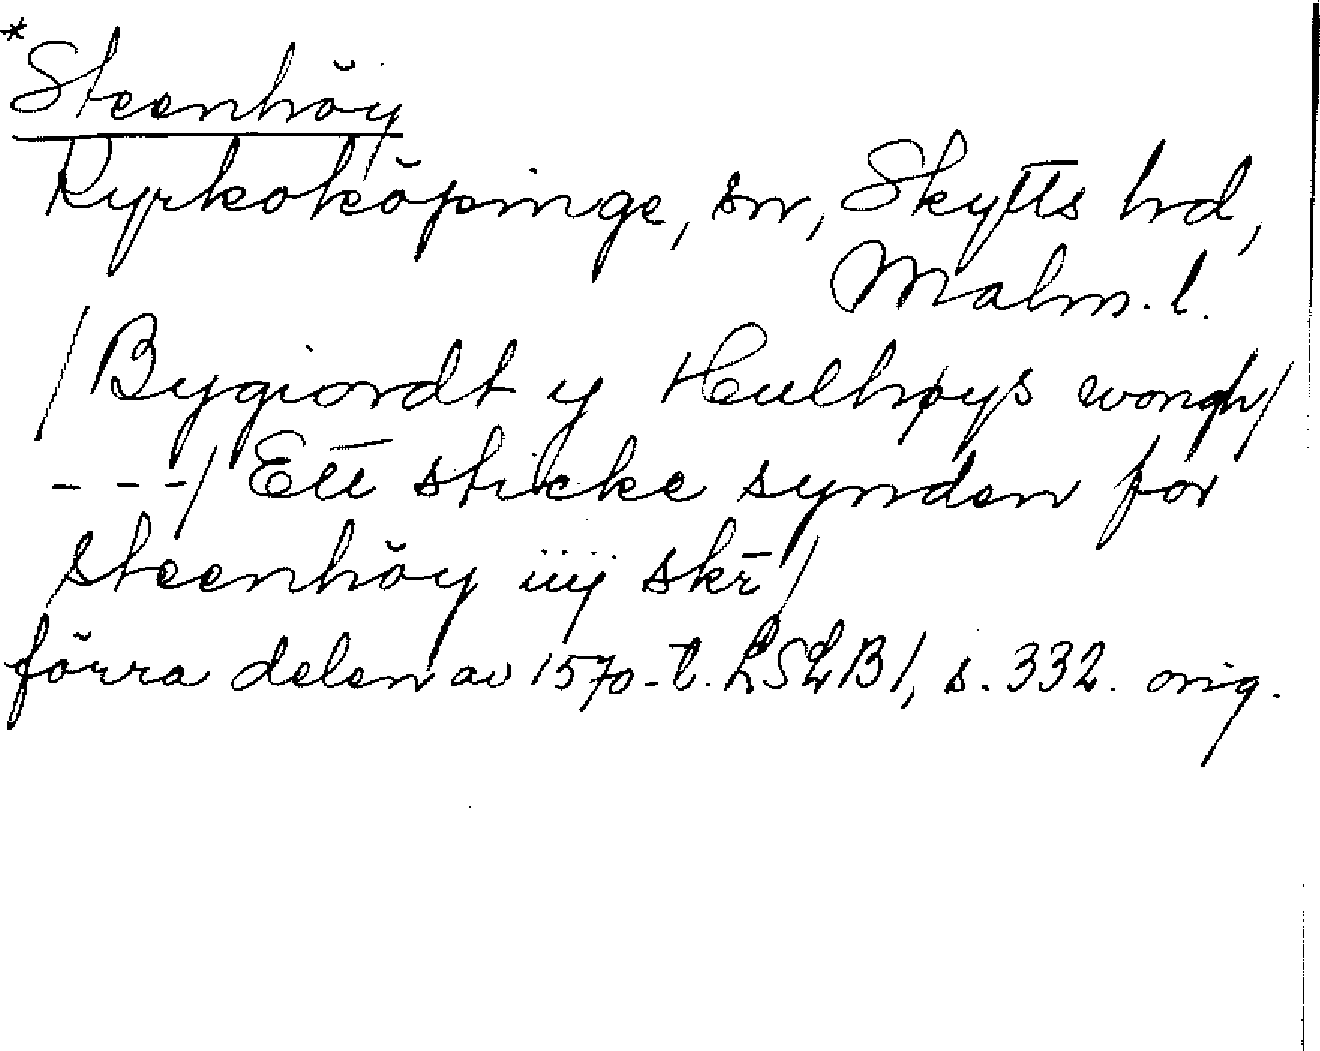 *Steenhöy
Kyrkoköpinge, sn, Skytts hd,
Malm. l.
/Bygiordt y Hulhøys wongh/
- - -/ Ett sticke synden for
steenhöy iiij skr̄/
förra delen av 1570-t. LSLB1, s. 332. orig.